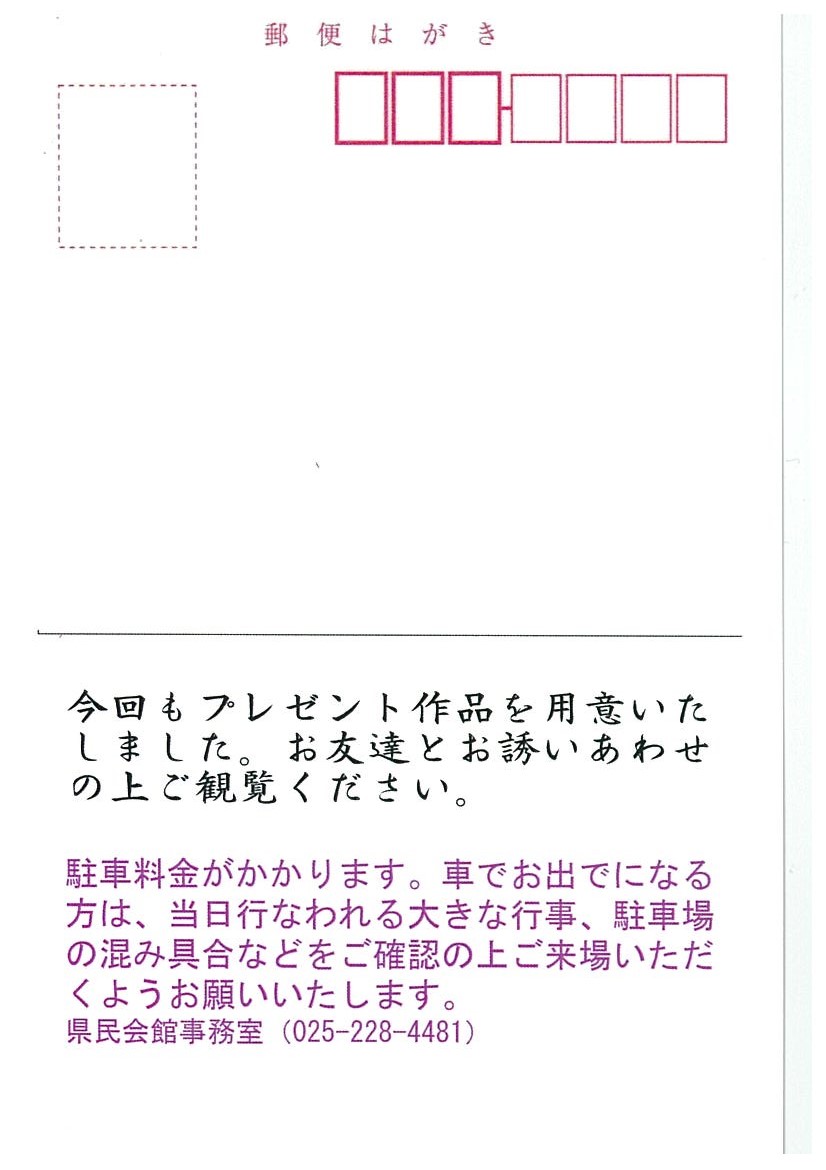 郵便はがき
今回もプレゼント作品を用意いた
しました。お友達とお誘いあわせ
の上ご観覧ください。
駐車料金がかかります。車でお出でになる
方は、当日行なわれる大きな行事、駐車場
の混み具合などをご確認の上ご来場いただ
くようお願いいたします。
県民会館事務室（025-228-4481）